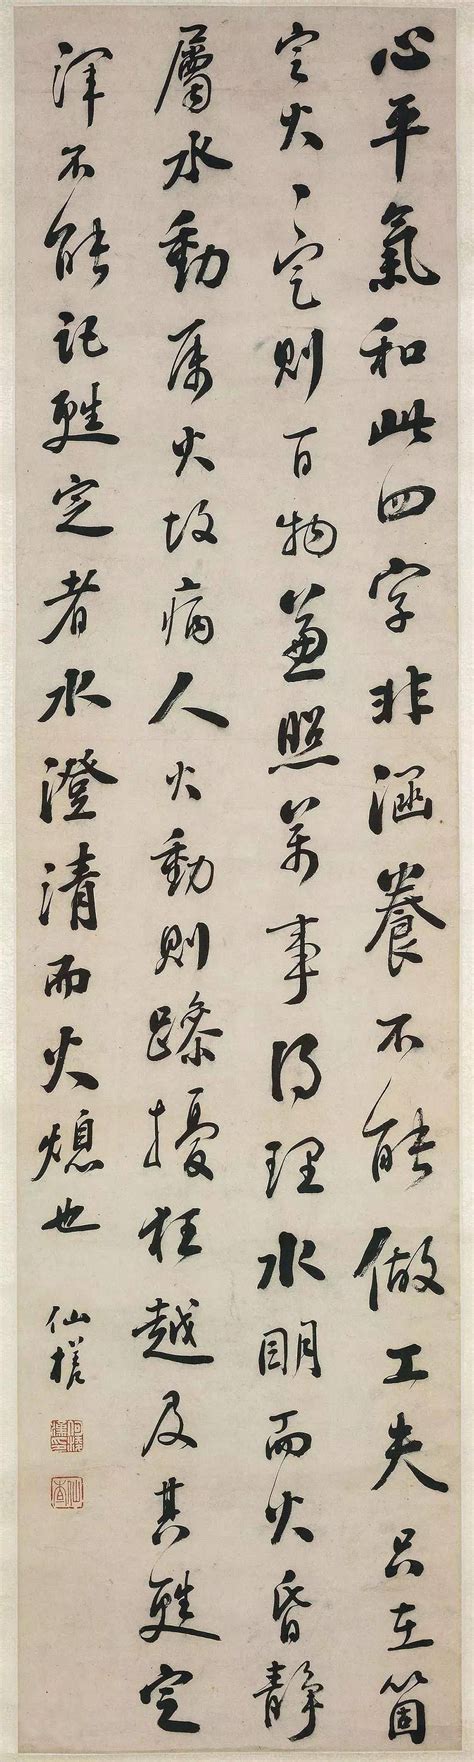 心平氣和此四字非涵養不能做工夫只在箇
定火〻定則百物兼照萬事得理水明而火昏靜
屬水動属火故病人火動則躁擾狂越及其甦定
渾不能記甦定者水澄清而火熄也
仙槎
何凌漢印